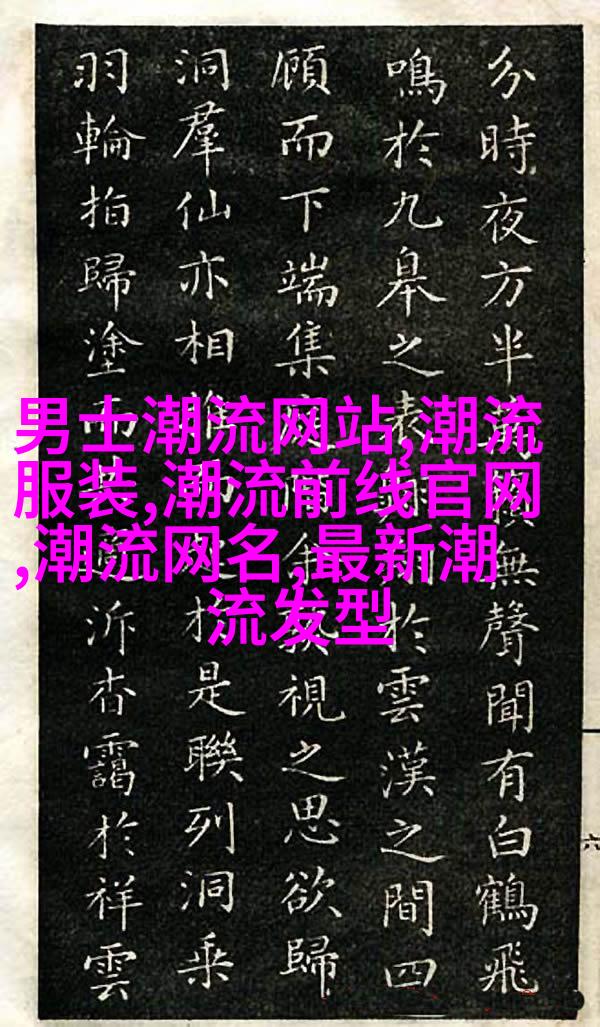 分時夜方半無聲聞有白鶴飛
鳴於九皋之表於雲漢之間四
顧而下端集視之思欲歸
洞羣仙亦相於是聯列洞乘
羽輪拍歸塗而泝杳靄於祥雲
男士潮流网站,潮流
服装,潮流前线官网
,潮流网名,最新潮
流发型
六